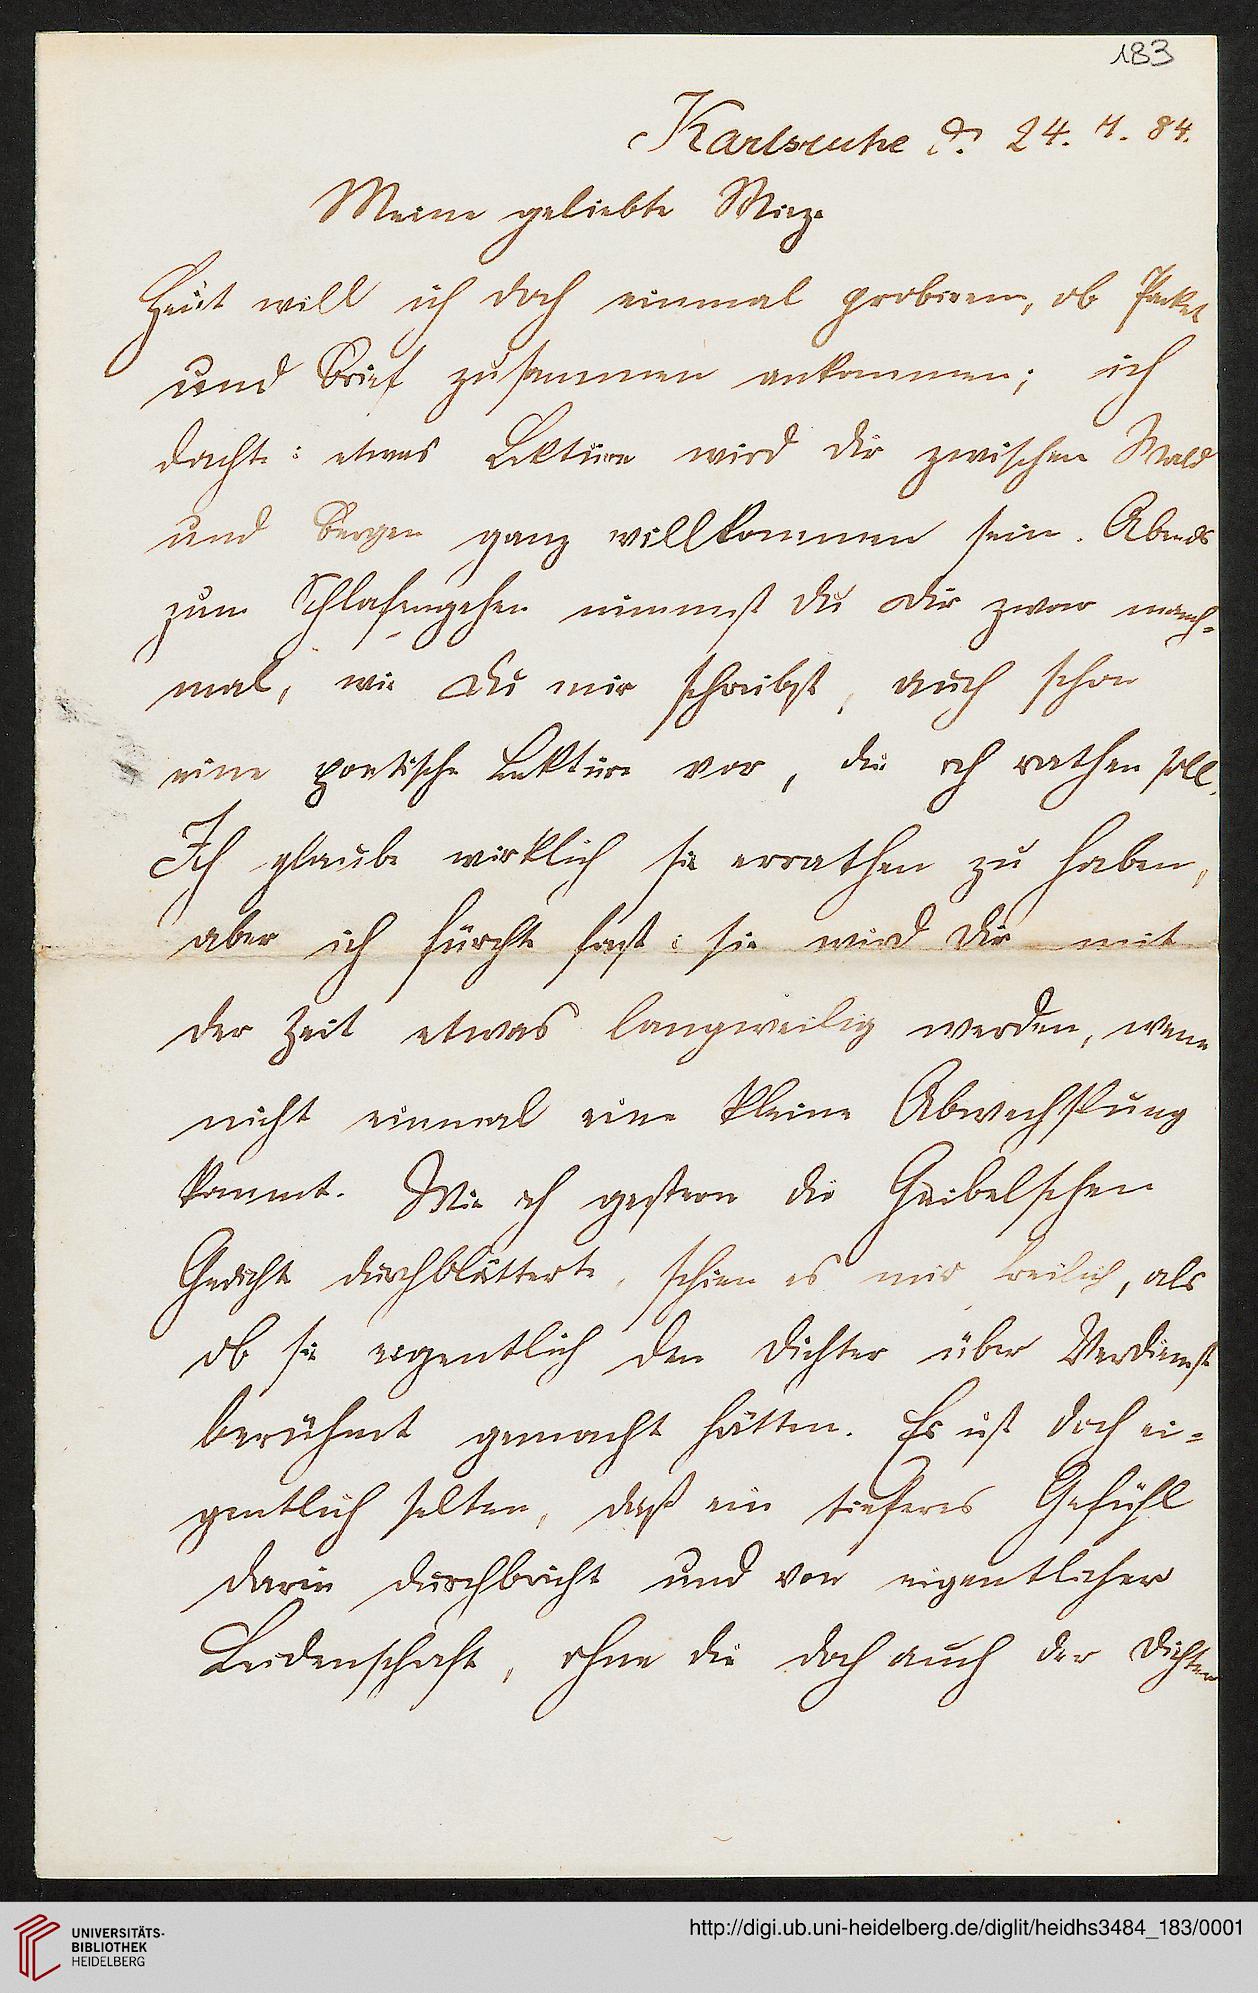 183
Karlsruhe d. 24. 4. 84.
Meine geliebte Mieze
Heut will ich doch einmal probiren, ob Packet
und Brief zusammen ankommen; ich
dachte: etwas Lektüre wird dir zwischen Wald
und Bergen ganz willkommen sein. Abends
zum Schlafengehen nimmst du dir zwar manch-
mal, wie Du mir schreibst, auch schon
eine poetische Lektüre vor, die ich rathen soll.
Ich glaube wirklich sie errathen zu haben,
aber ich fürchte fast: sie wird Dir mit
der Zeit etwas langweilig werden, wenn
nicht einmal eine kleine Abwechslung
kommt. Wie ich gestern die Geibelschen
Gedichte durchblätterte, schien es mir freilich, als
ob sie eigentlich den Dichter über Verdienst
berühmt gemacht hätten. Es ist doch ei-
gentlich selten, daß ein tieferes Gefühl
darin durchbricht und von eigentlicher
Leidenschaft, ohne die doch auch der Dichter
UNIVERSITÄTS-
BIBLIOTHEK
HEIDELBERG
http://digi.ub.uni-heidelberg.de/diglit/heidhs3484_183/0001